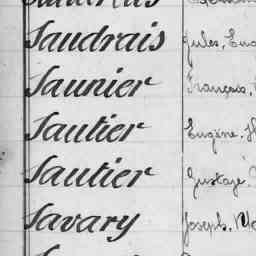 Saudrais Jules,
Saunier François,
Sautier Eugène, H
Sautier Gustave,
Savary Joseph,